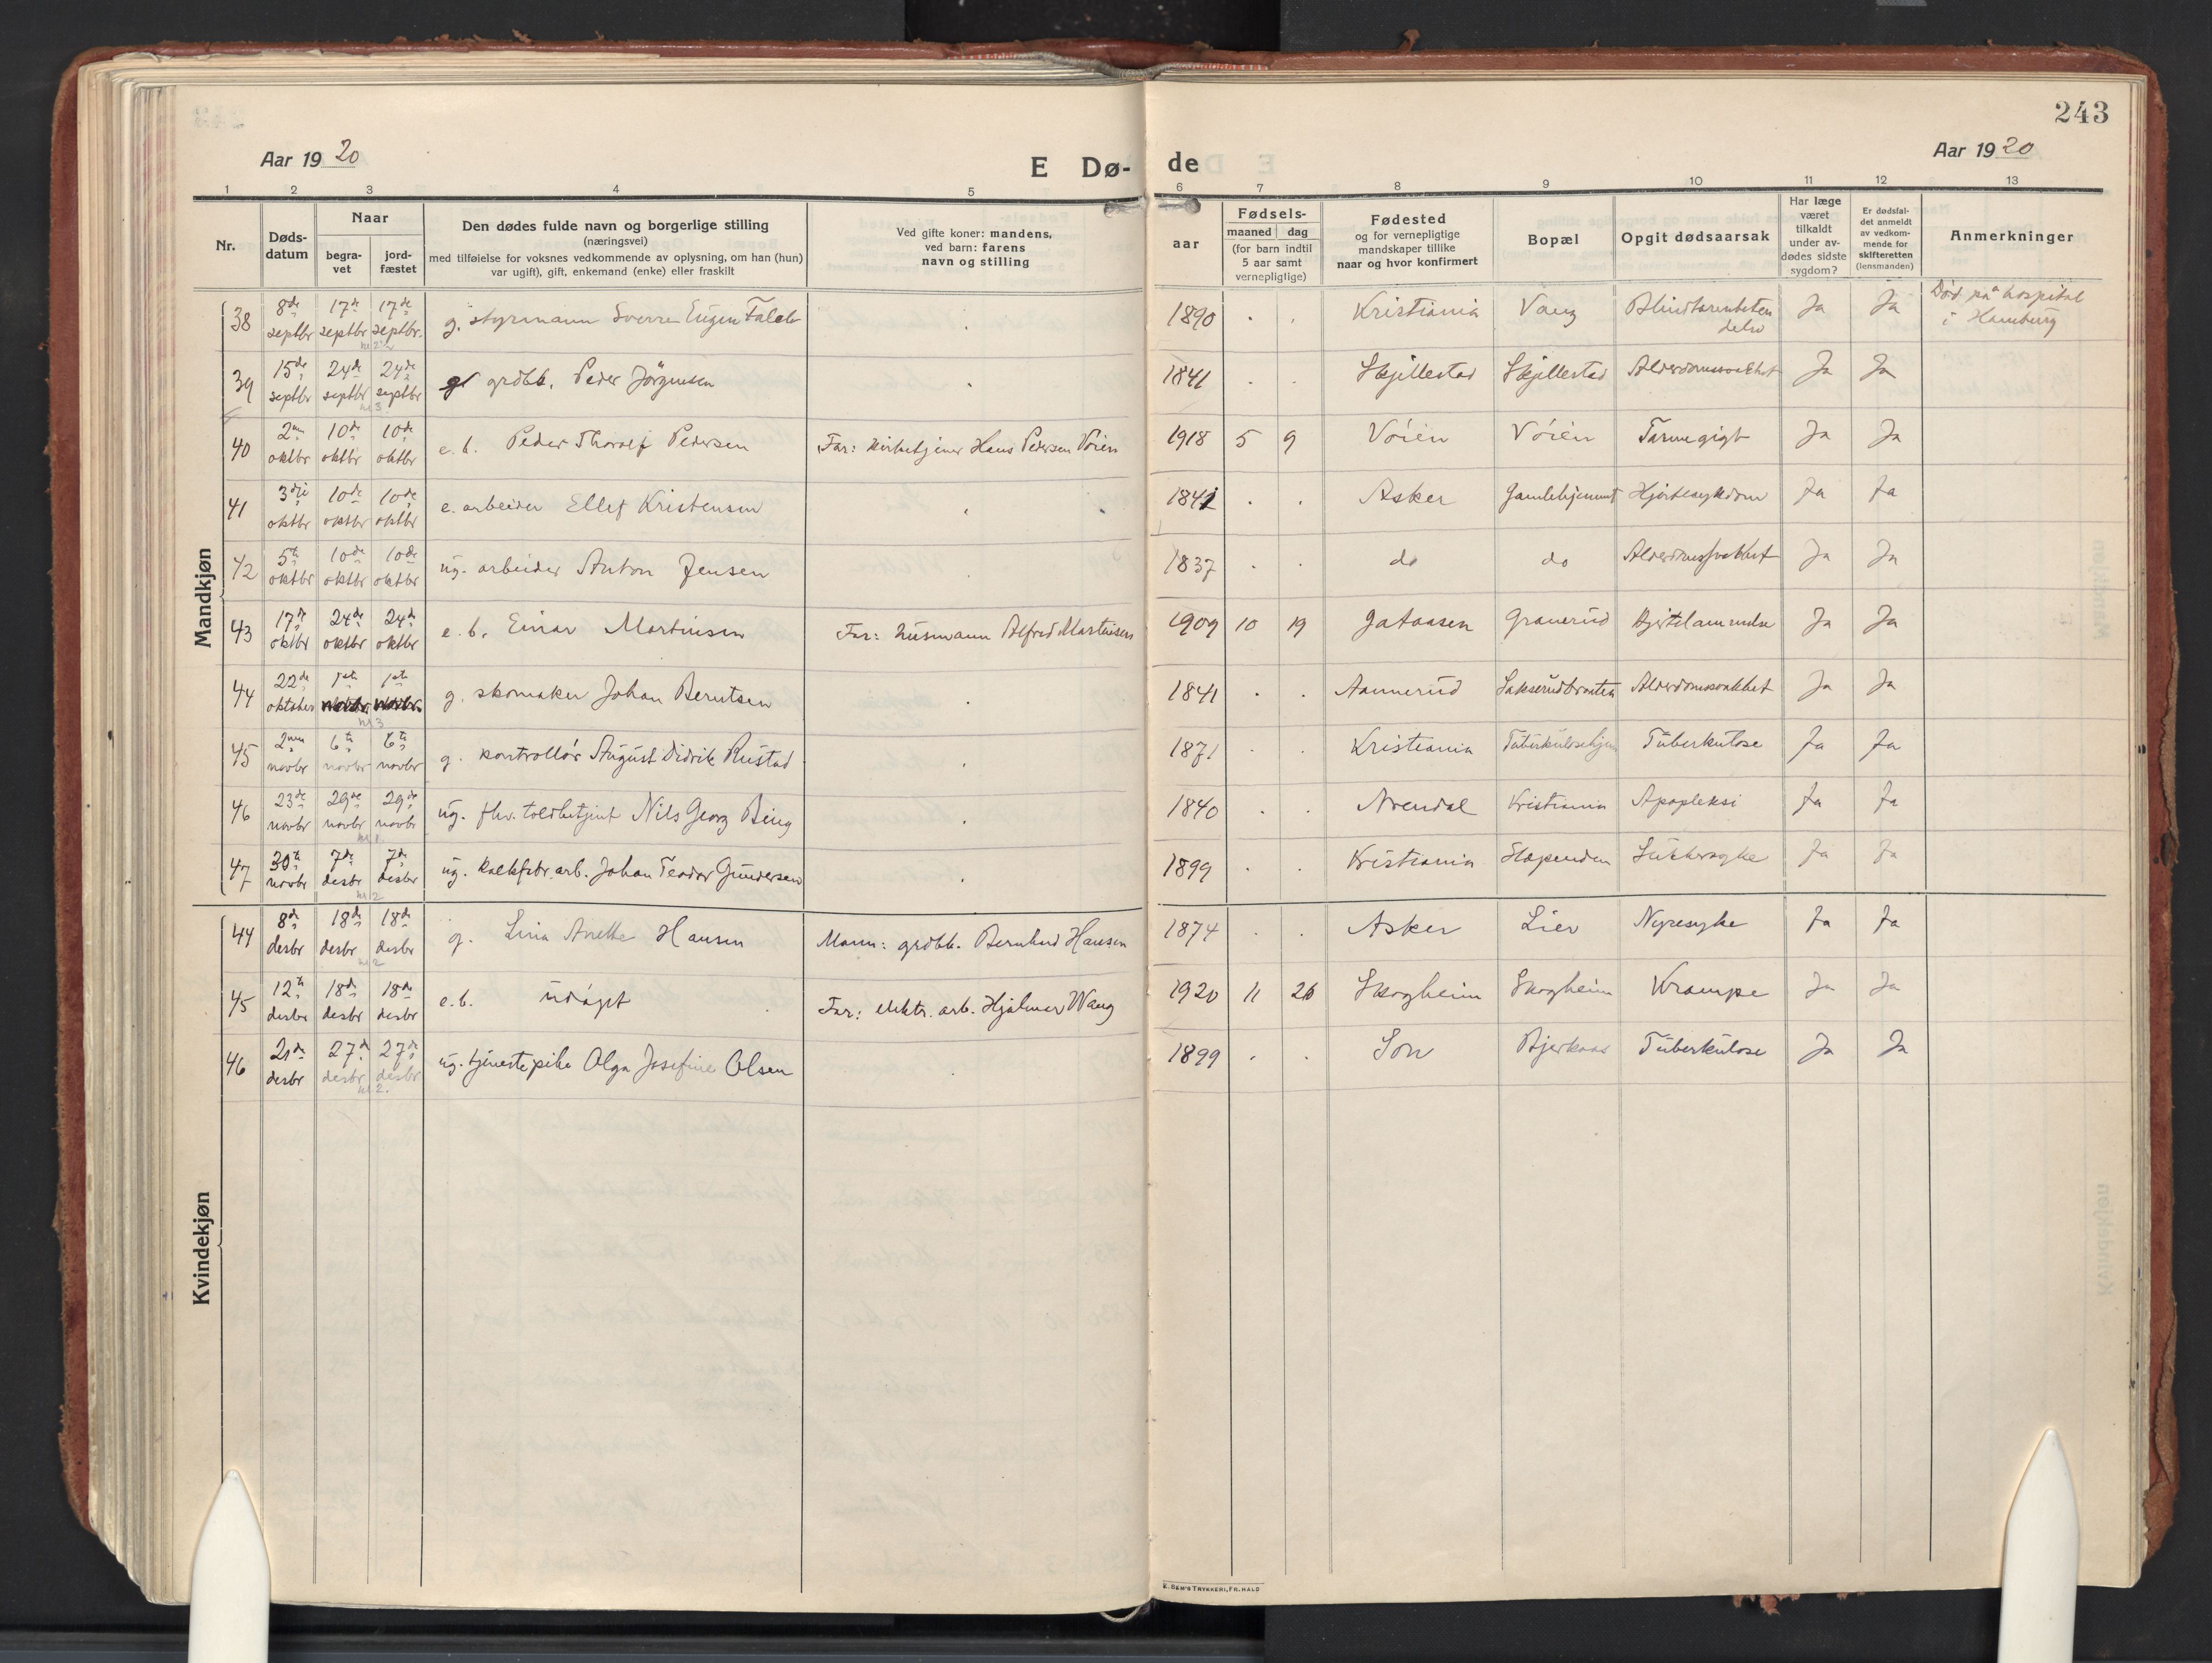 243
Aar 1920
E Dø-
de
Aar 1920
1 2 3 4 5 6 7 8 9 10 11 12 13
Nr.
Døds-
datum
Naar
begra-
vet
jord-
fæstet
Den dødes fulde navn og borgerlige stilling
(næringsvei)
med tilføielse for voksnes vedkommende av oplysning, om han (hun)
var ugift), gift, enkemand (enke) eller fraskilt
Ved gifte koner: mandens,
ved barn: farens
navn og stilling
aar
Fødsels-
maaned dag
(for barn indtil
5 aar samt
vernepligtige)
Fødested
og for vernepligtige
mandskaper tillike
naar og hvor konfirmert
Bopæl
Opgit dødsaarsak
Har læge
været
tilkaldt
under av-
dødes sidste
sygdom?
Er dødsfal-
det anmeldt
av vedkom-
mende for
skifteretten
(lensmanden)
Anmerkninger
Mandkjøn
38 8de septbr 17de septbr 17de septbr. g. styrmann Sverre Eugen Falck . 1890 . . Kristiania Vang Blindtarmbeten
delse Ja Ja Død på hospital
i Hamburg
39 15de septbr 24de septbr 24de septbr grdbr. Peder Jörgensen . 1841 . . Skjillestad Skjillestad Alderdomssvakhet Ja Ja
40 2nn oktbr 10de oktbr 10de oktbr e.b. Peder Thoralf Pedersen Far: kirketjener Hans Pedersen Vöien 1918 5 9 Vöien Vöien Tarmegigt Ja Ja
41 3dje oktbr 10de oktbr 10de oktbr e. arbeider Ellef Kristensen . 1841 . . Asker Gamlehjemmet Hjertesykdom Ja Ja
42 5te oktbr 10de oktbr 10de oktbr ug. arbeider Anton Jensen . 1837 . . do do Alderdomssvakhet Ja Ja
43 17de oktbr 24de oktbr 24de oktbr e.b. Einar Martinsen Far: husmann Alfred Martinsen 1909 10 19 Gataasen Granerud Hjertelammelse Ja Ja
44 22de oktober 1ste novbr. 1ste novbr. g. skomaker Johan Berntsen . 1841 . . Aannerud Lakserudbraaten Alderdomssvakhet Ja Ja
45 2nn novbr 6te novbr 6te novbr g. kontrollör August Didrik Rustad . 1871 . . Kristiania Tuberkulosehjem Tuberkulose Ja Ja
46 23de novbr 29de novbr 29de novbr ug. fhv. toldbetjent Nils Georg Bing . 1840 . . Arendal Kristiania Apopleksi Ja Ja
47 30te novbr 7de desbr 7de desbr ug. kalkfabr. arb. Johan Teodor Gundersen . 1899 . . Kristiania Slependen Sukkersyke Ja Ja
Kvindekjøn
44 8de desbr 18de desbr 18de desbr g. Lina Anette Hansen Mann: grdbr. Bernhard Hansen 1874 . . Asker Lier Nyresyke Ja Ja
45 12te desbr 18de desbr 18de desbr e.b. udöpt Far: elektr. arb. Hjalmar Wang 1920 11 26 Skogheim Skogheim Krampe Ja Ja
46 21de desbr 27de desbr 27de desbr ug. tjenestepike Olga Josefine Olsen . 1899 . . Son Bjerkaas Tuberkulose Ja Ja
E. SEM'S TRYKKERI, FR.HALD